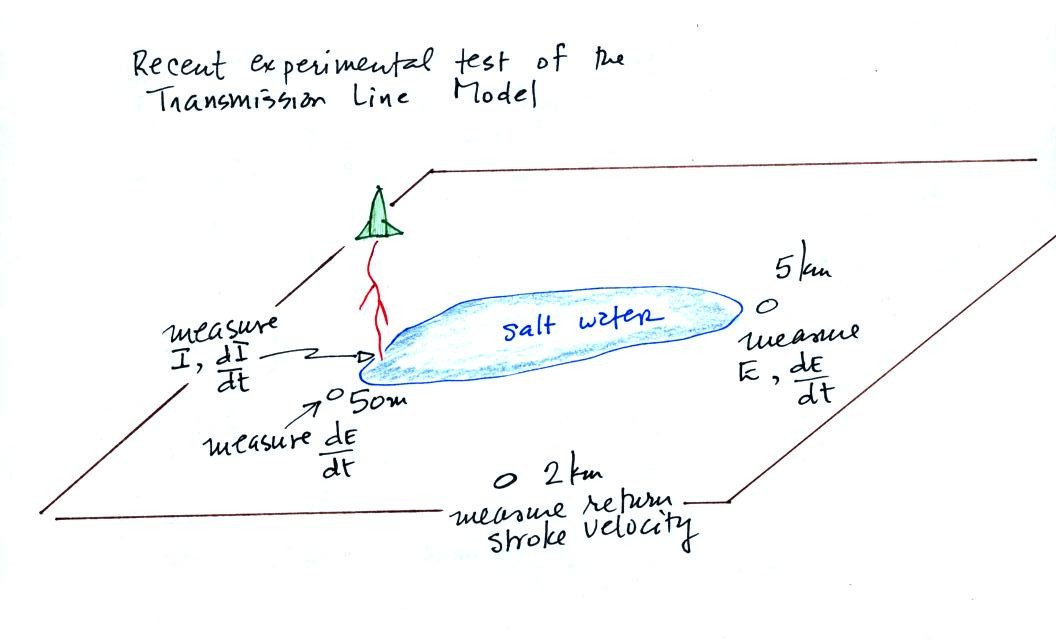 Recent experimental test of the
Transmission Line Model
5 km
salt water
measure
I, dI/dt
measure
E, dE/dt
50m
measure dE/dt
2 km
measure return
stroke velocity